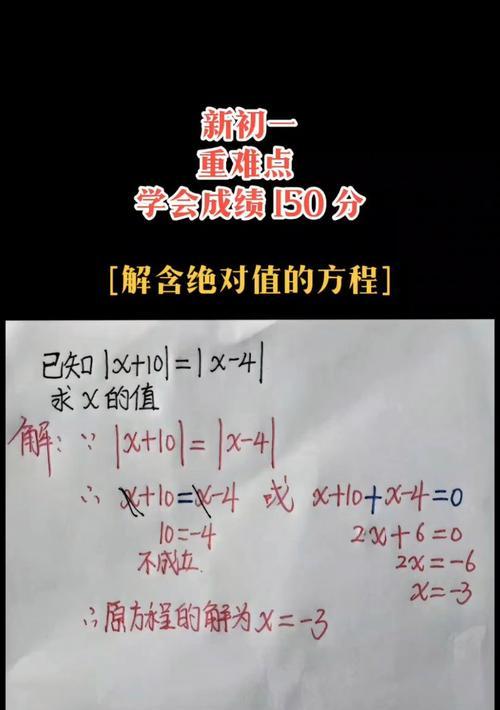 新初一
重难点
学会成绩150分
[解含绝对值的方程]
已知|x+10|=|x-4|
求x的值
解:∵|x+10|=|x-4|
∴ x+10=x-4 或 x+10+x-4=0
10=-4 2x+6=0
不成立 2x=-6
x=-3
∴原方程的解为x=-3